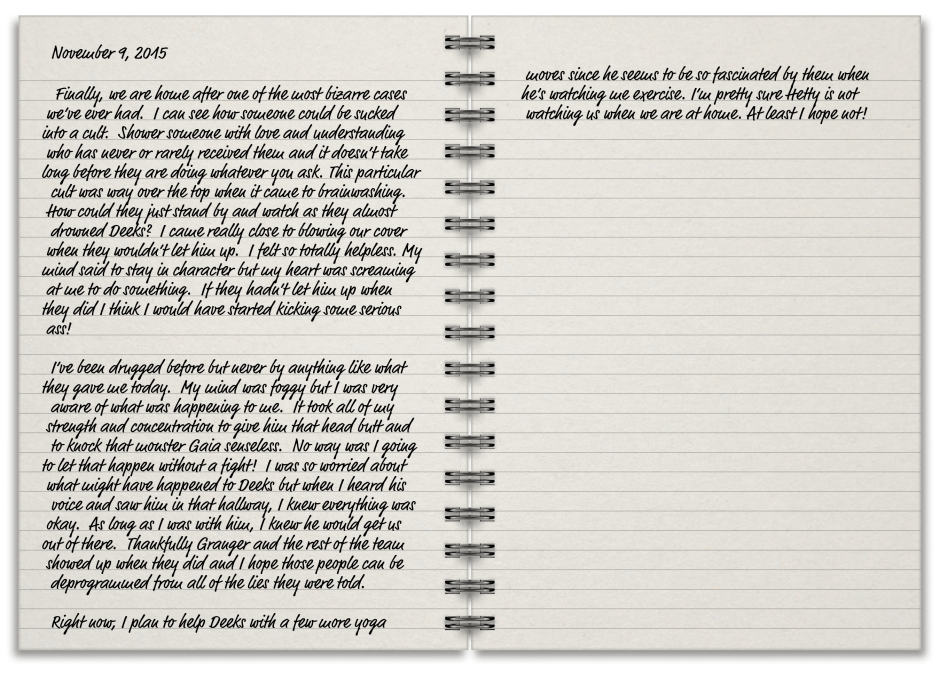 November 9, 2015
Finally, we are home after one of the most bizarre cases
we've ever had. I can see how someone could be sucked
into a cult. Shower someone with love and understanding
who has never or rarely received them and it doesn't take
long before they are doing whatever you ask. This particular
cult was way over the top when it came to brainwashing.
How could they just stand by and watch as they almost
drowned Deeks? I came really close to blowing our cover
when they wouldn't let him up. I felt so totally helpless. My
mind said to stay in character but my heart was screaming
at me to do something. If they hadn't let him up when
they did I think I would have started kicking some serious
ass!
I've been drugged before but never by anything like what
they gave me today. My mind was foggy but I was very
aware of what was happening to me. It took all of my
strength and concentration to give him that head butt and
to knock that monster Gaia senseless. No way was I going
to let that happen without a fight! I was so worried about
what might have happened to Deeks but when I heard his
voice and saw him in that hallway, I knew everything was
okay. As long as I was with him, I knew he would get us
out of there. Thankfully Granger and the rest of the team
showed up when they did and I hope those people can be
deprogrammed from all of the lies they were told.
Right now, I plan to help Deeks with a few more yoga
moves since he seems to be so fascinated by them when
he's watching me exercise. I'm pretty sure Hetty is not
watching us when we are at home. At least I hope not!